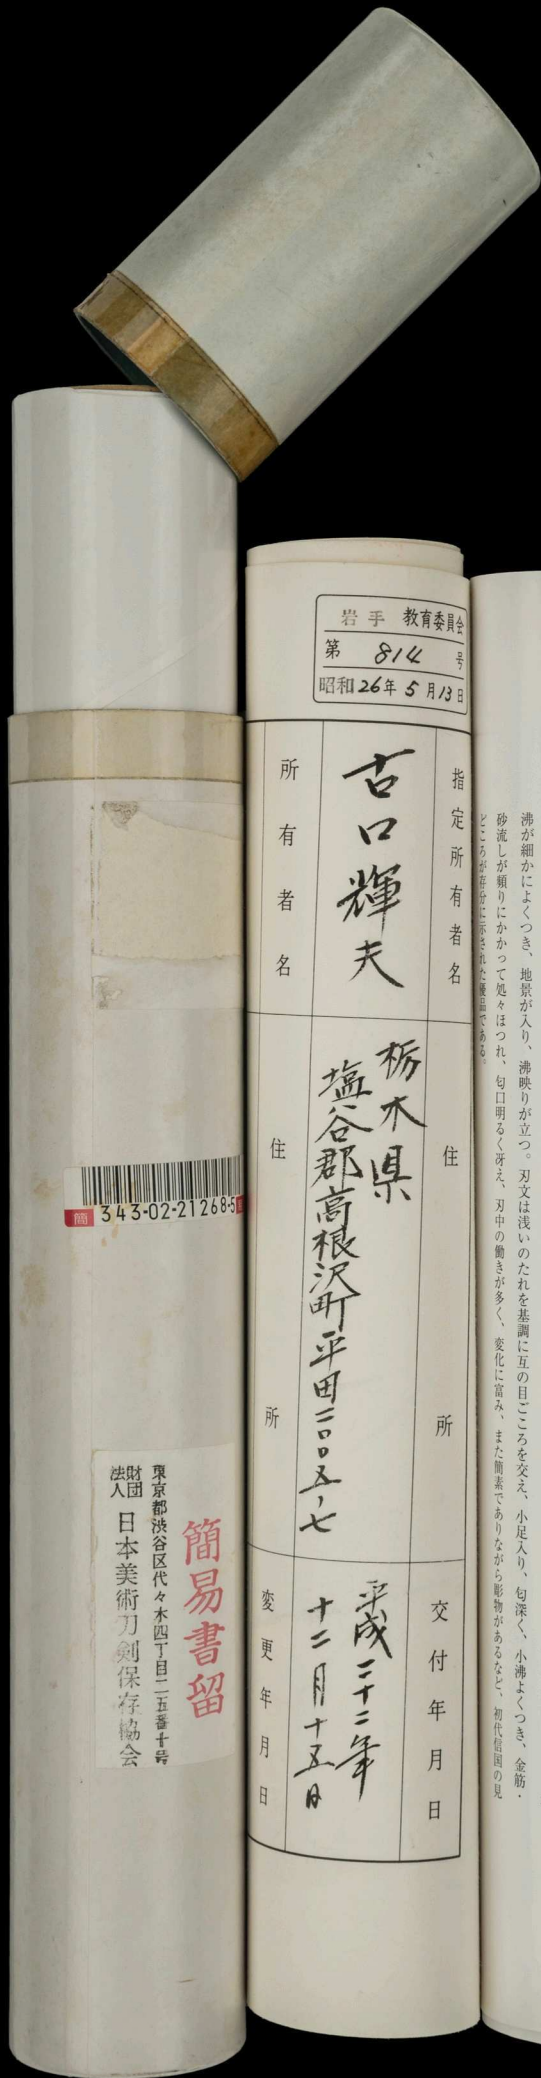 岩手 教育委員会
第 814 号
昭和26年5月13日
指定所有者名
古口輝夫
所有者名
住所
栃木県
塩谷郡高根沢町平田二〇〇五-七
住所
交付年月日
平成二十二年
十二月十五日
変更年月日
沸が細かによくつき、地景が入り、沸映りが立つ。刃文は浅いのたれを基調に互の目ごころを交え、小足入り、匂深く、小沸よくつき、金筋・
砂流しが頻りにかかって処々ほつれ、匂口明るく冴え、刃中の働きが多く、変化に富み、また簡素でありながら彫物があるなど、初代信国の見
どころが存分に示された優品である。
簡 343-02-21268-5
簡易書留
東京都渋谷区代々木四丁目二五番十号
財団法人 日本美術刀剣保存協会